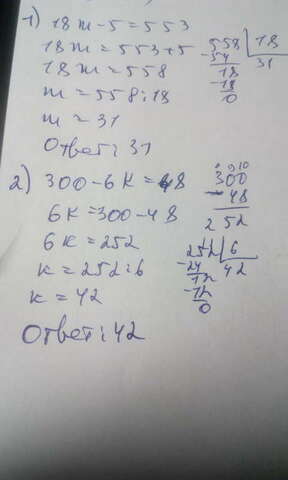 1) 18m - 5 = 553
18m = 553 + 5
18m = 558
m = 558 : 18
m = 31
Ответ: 31
558 | 18
- 54
31
18
- 18
0
2) 300 - 6к = 48
6к = 300 - 48
6к = 252
к = 252 : 6
к = 42
Ответ: 42
300
- 48
252
252 | 6
- 24
42
12
- 12
0